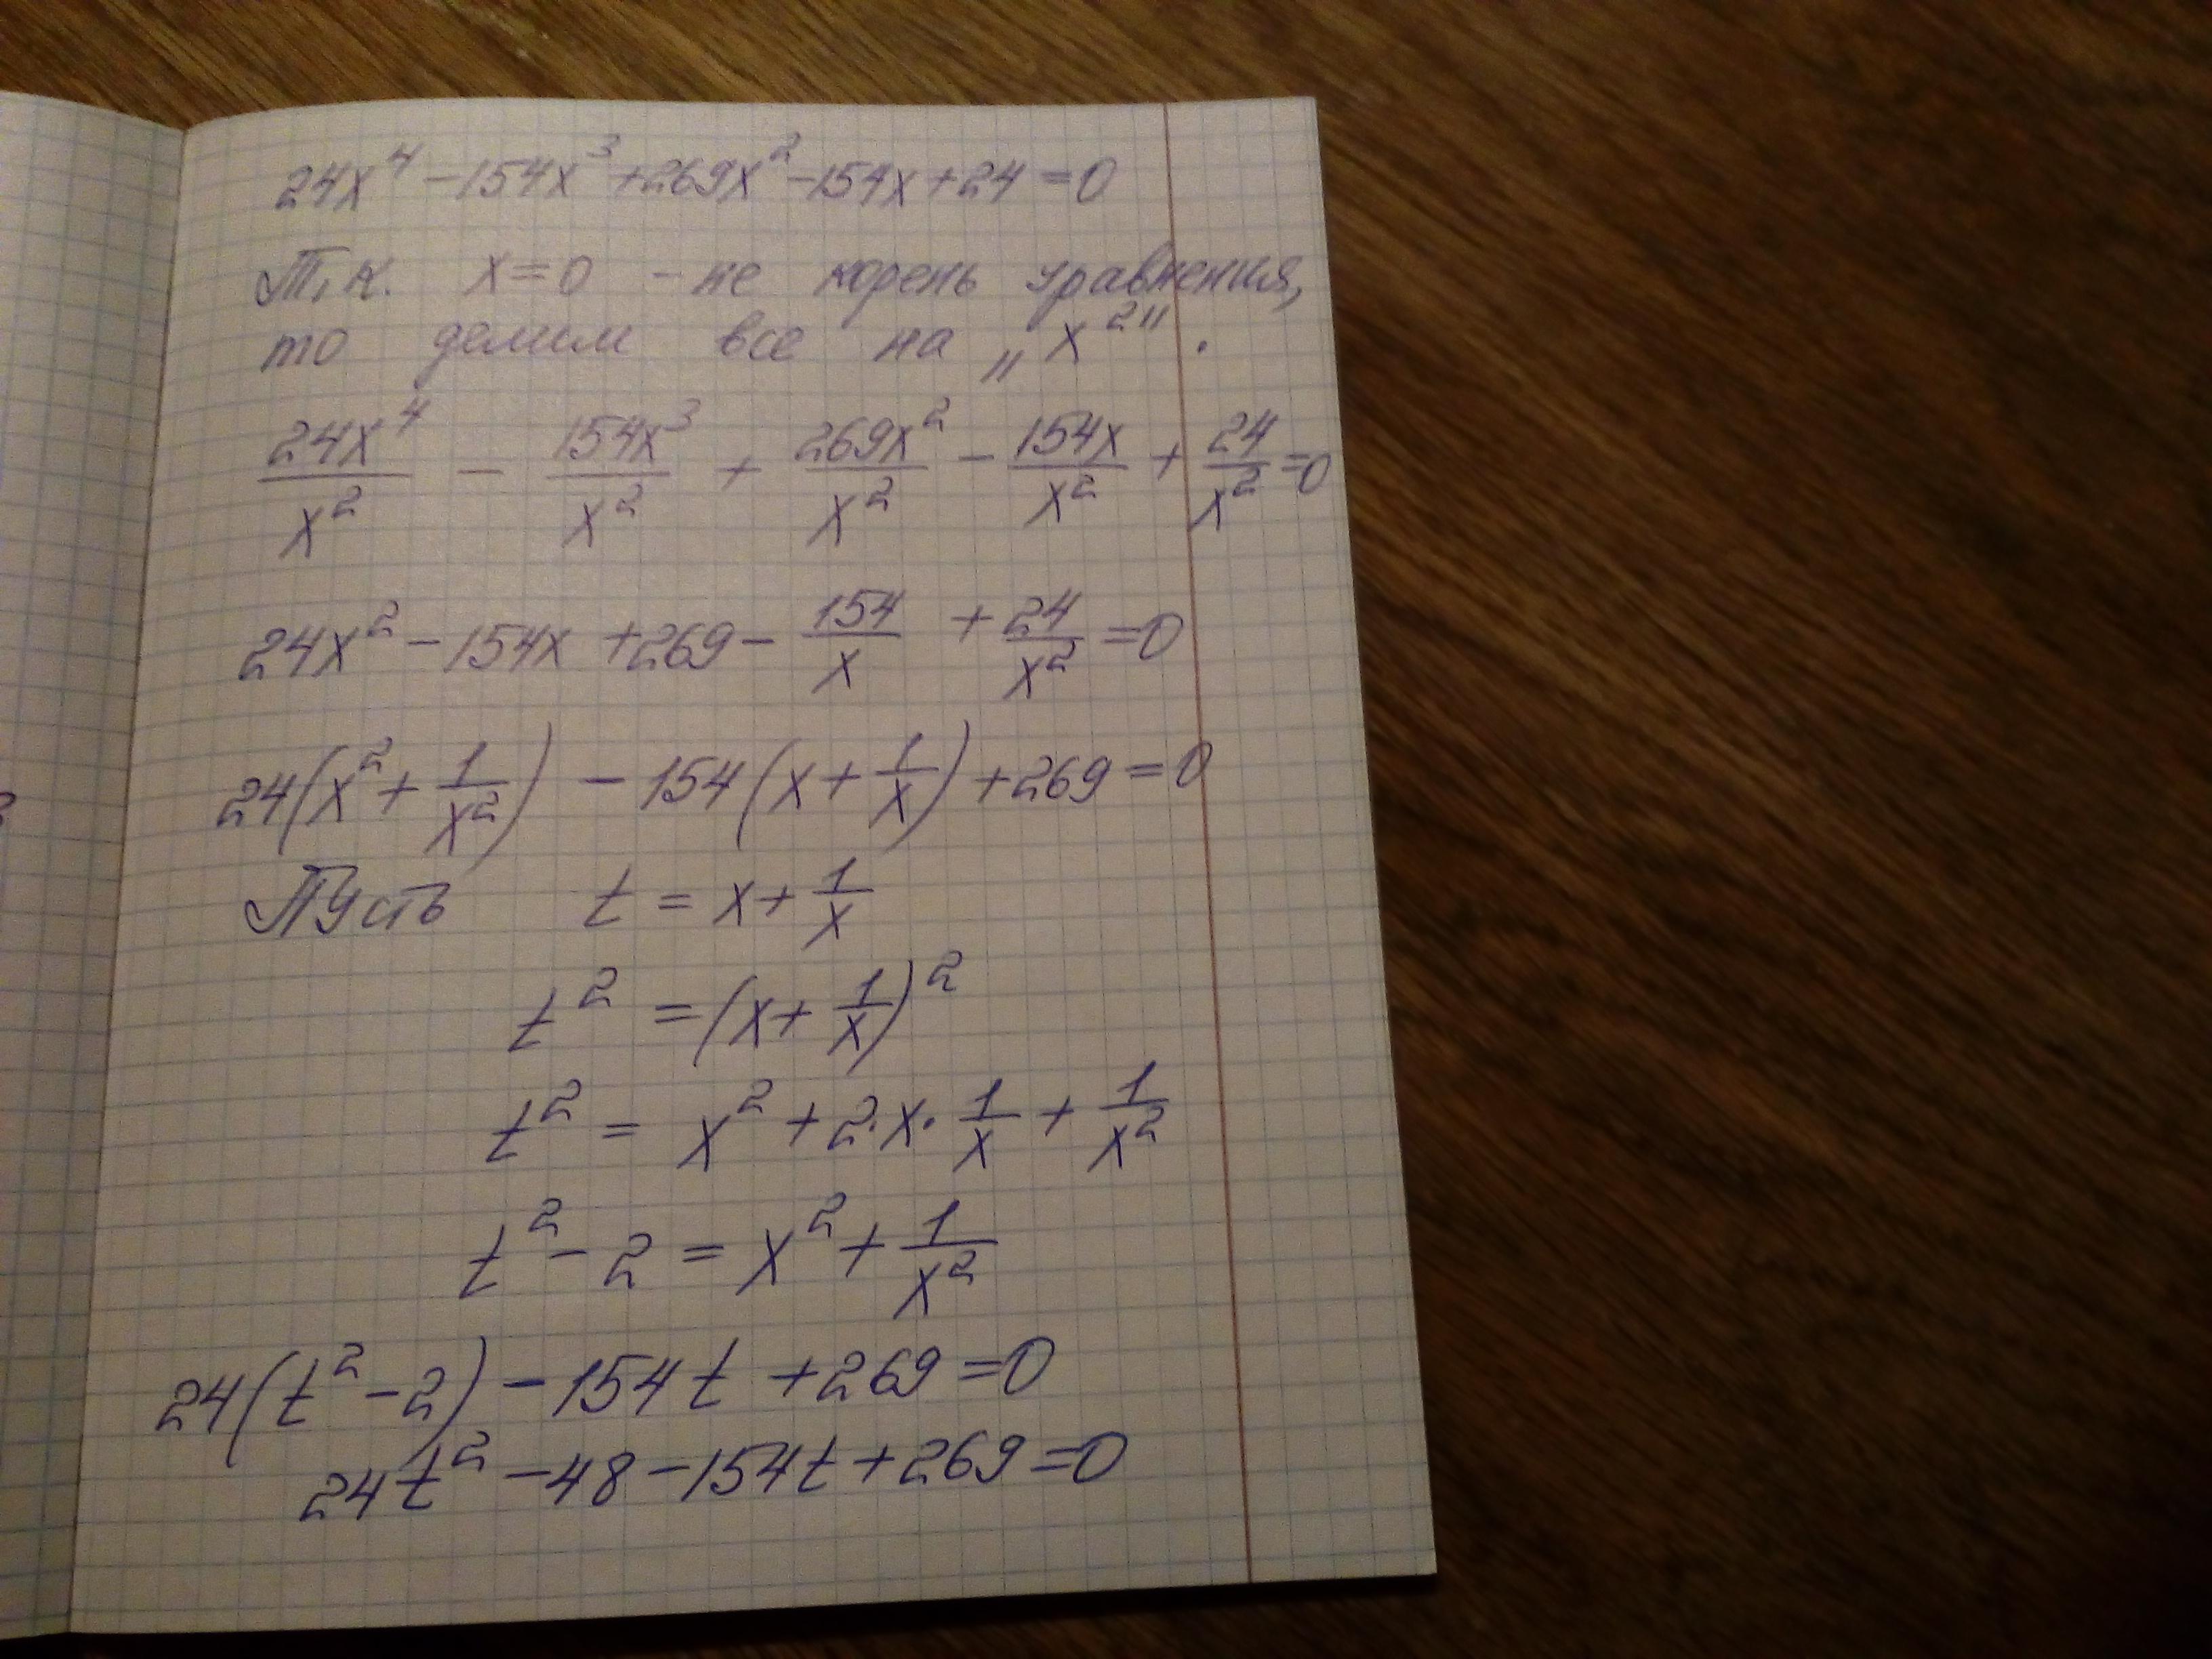 24x⁴ - 154x³ + 269x² - 154x + 24 = 0
Т.к. x = 0 - не корень уравнения,
то делим все на „x²".
24x⁴/x² - 154x³/x² + 269x²/x² - 154x/x² + 24/x² = 0
24x² - 154x + 269 - 154/x + 24/x² = 0
24(x² + 1/x²) - 154(x + 1/x) + 269 = 0
Пусть t = x + 1/x
t² = (x + 1/x)²
t² = x² + 2·x·1/x + 1/x²
t² - 2 = x² + 1/x²
24(t² - 2) - 154t + 269 = 0
24t² - 48 - 154t + 269 = 0